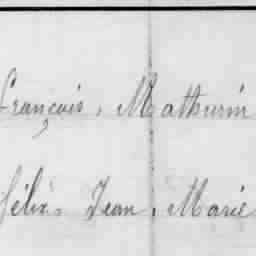 François, Mathurin
Félix, Jean, Marie